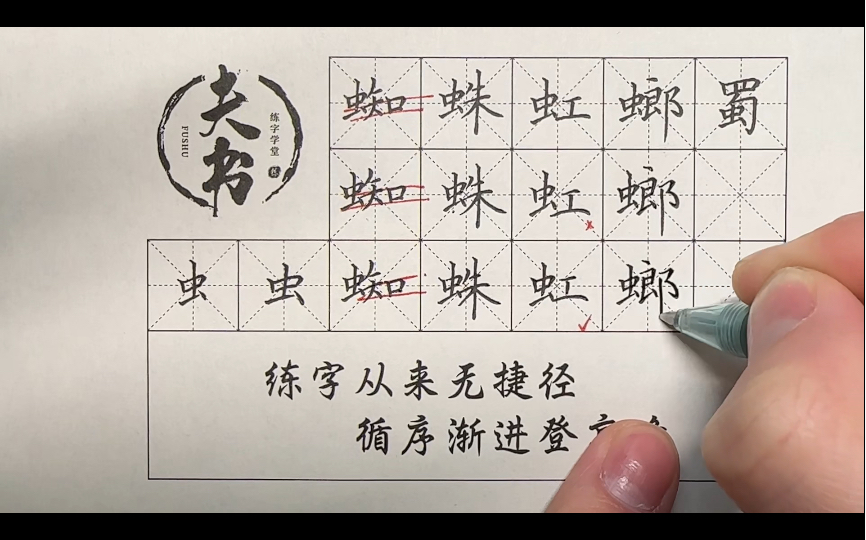 夫书
练字学堂
FUSHU
蜘 蛛 虹 螂 蜀
蜘 蛛 虹 螂
虫 虫 蜘 蛛 虹 螂
练字从来无捷径
循序渐进登